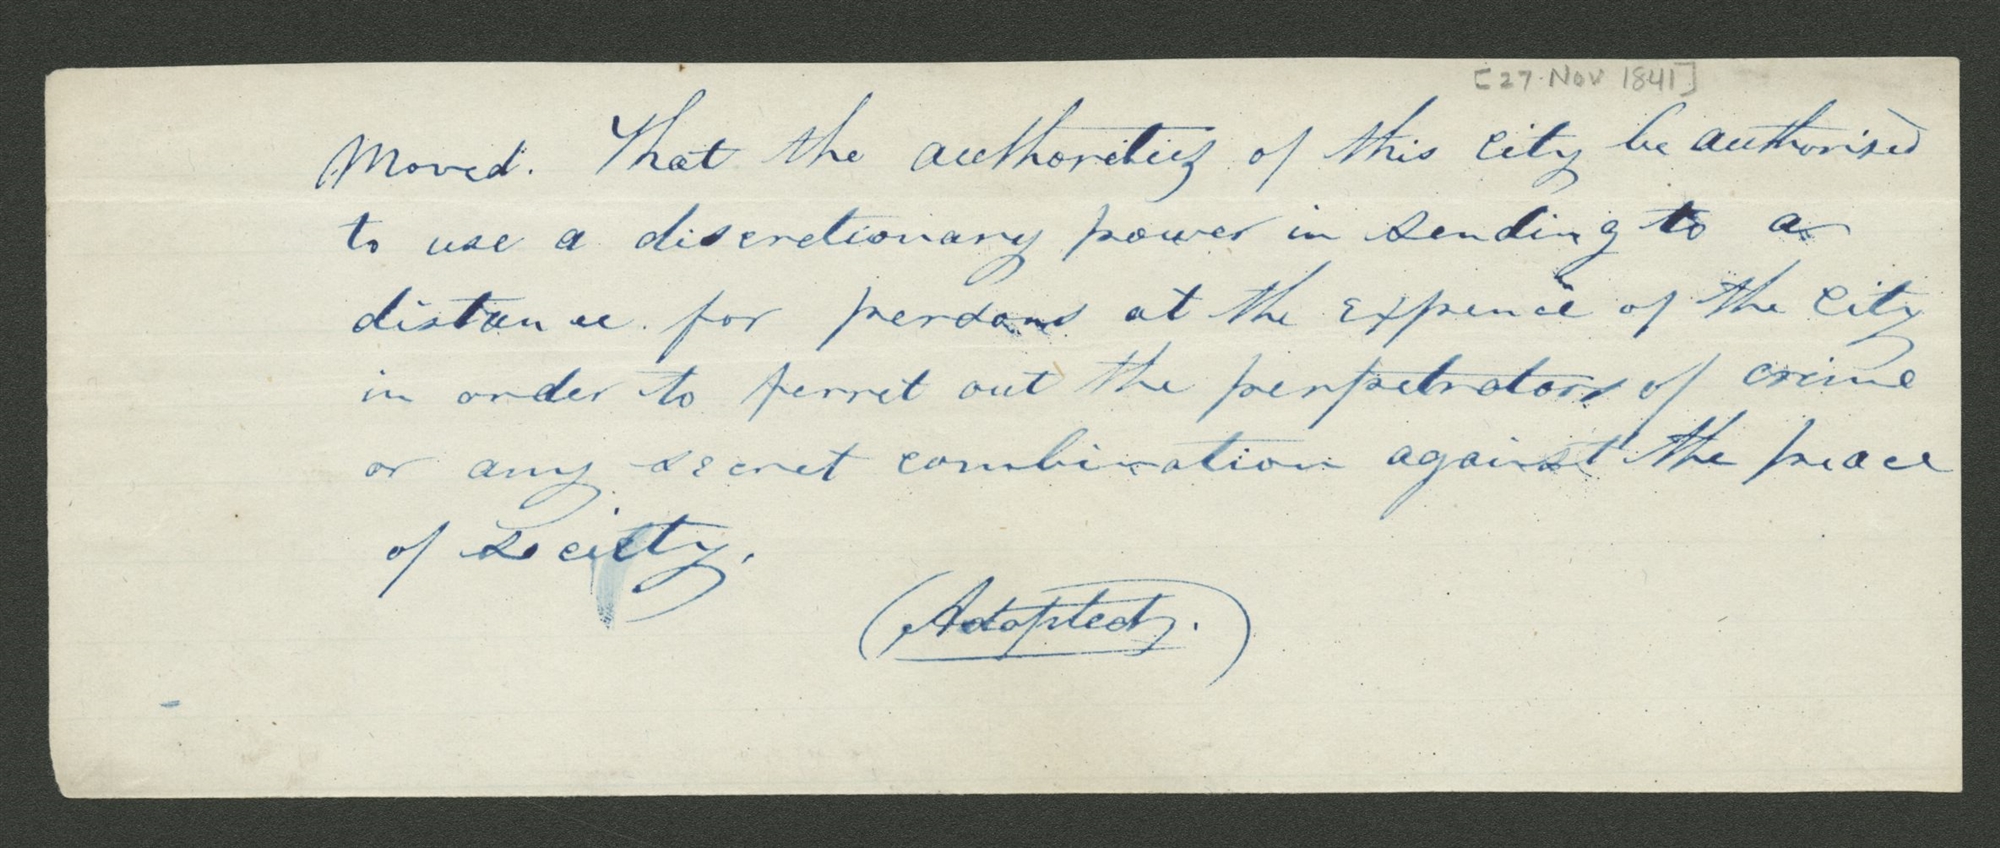 [27 Nov 1841]
Moved. That the authorities of this City be authorised
to use a discretionary power in sending to a
distance for persons at the expence of the City
in order to ferret out the perpetrators of crime
or any secret combination against the peace
of society.
(Adopted.)